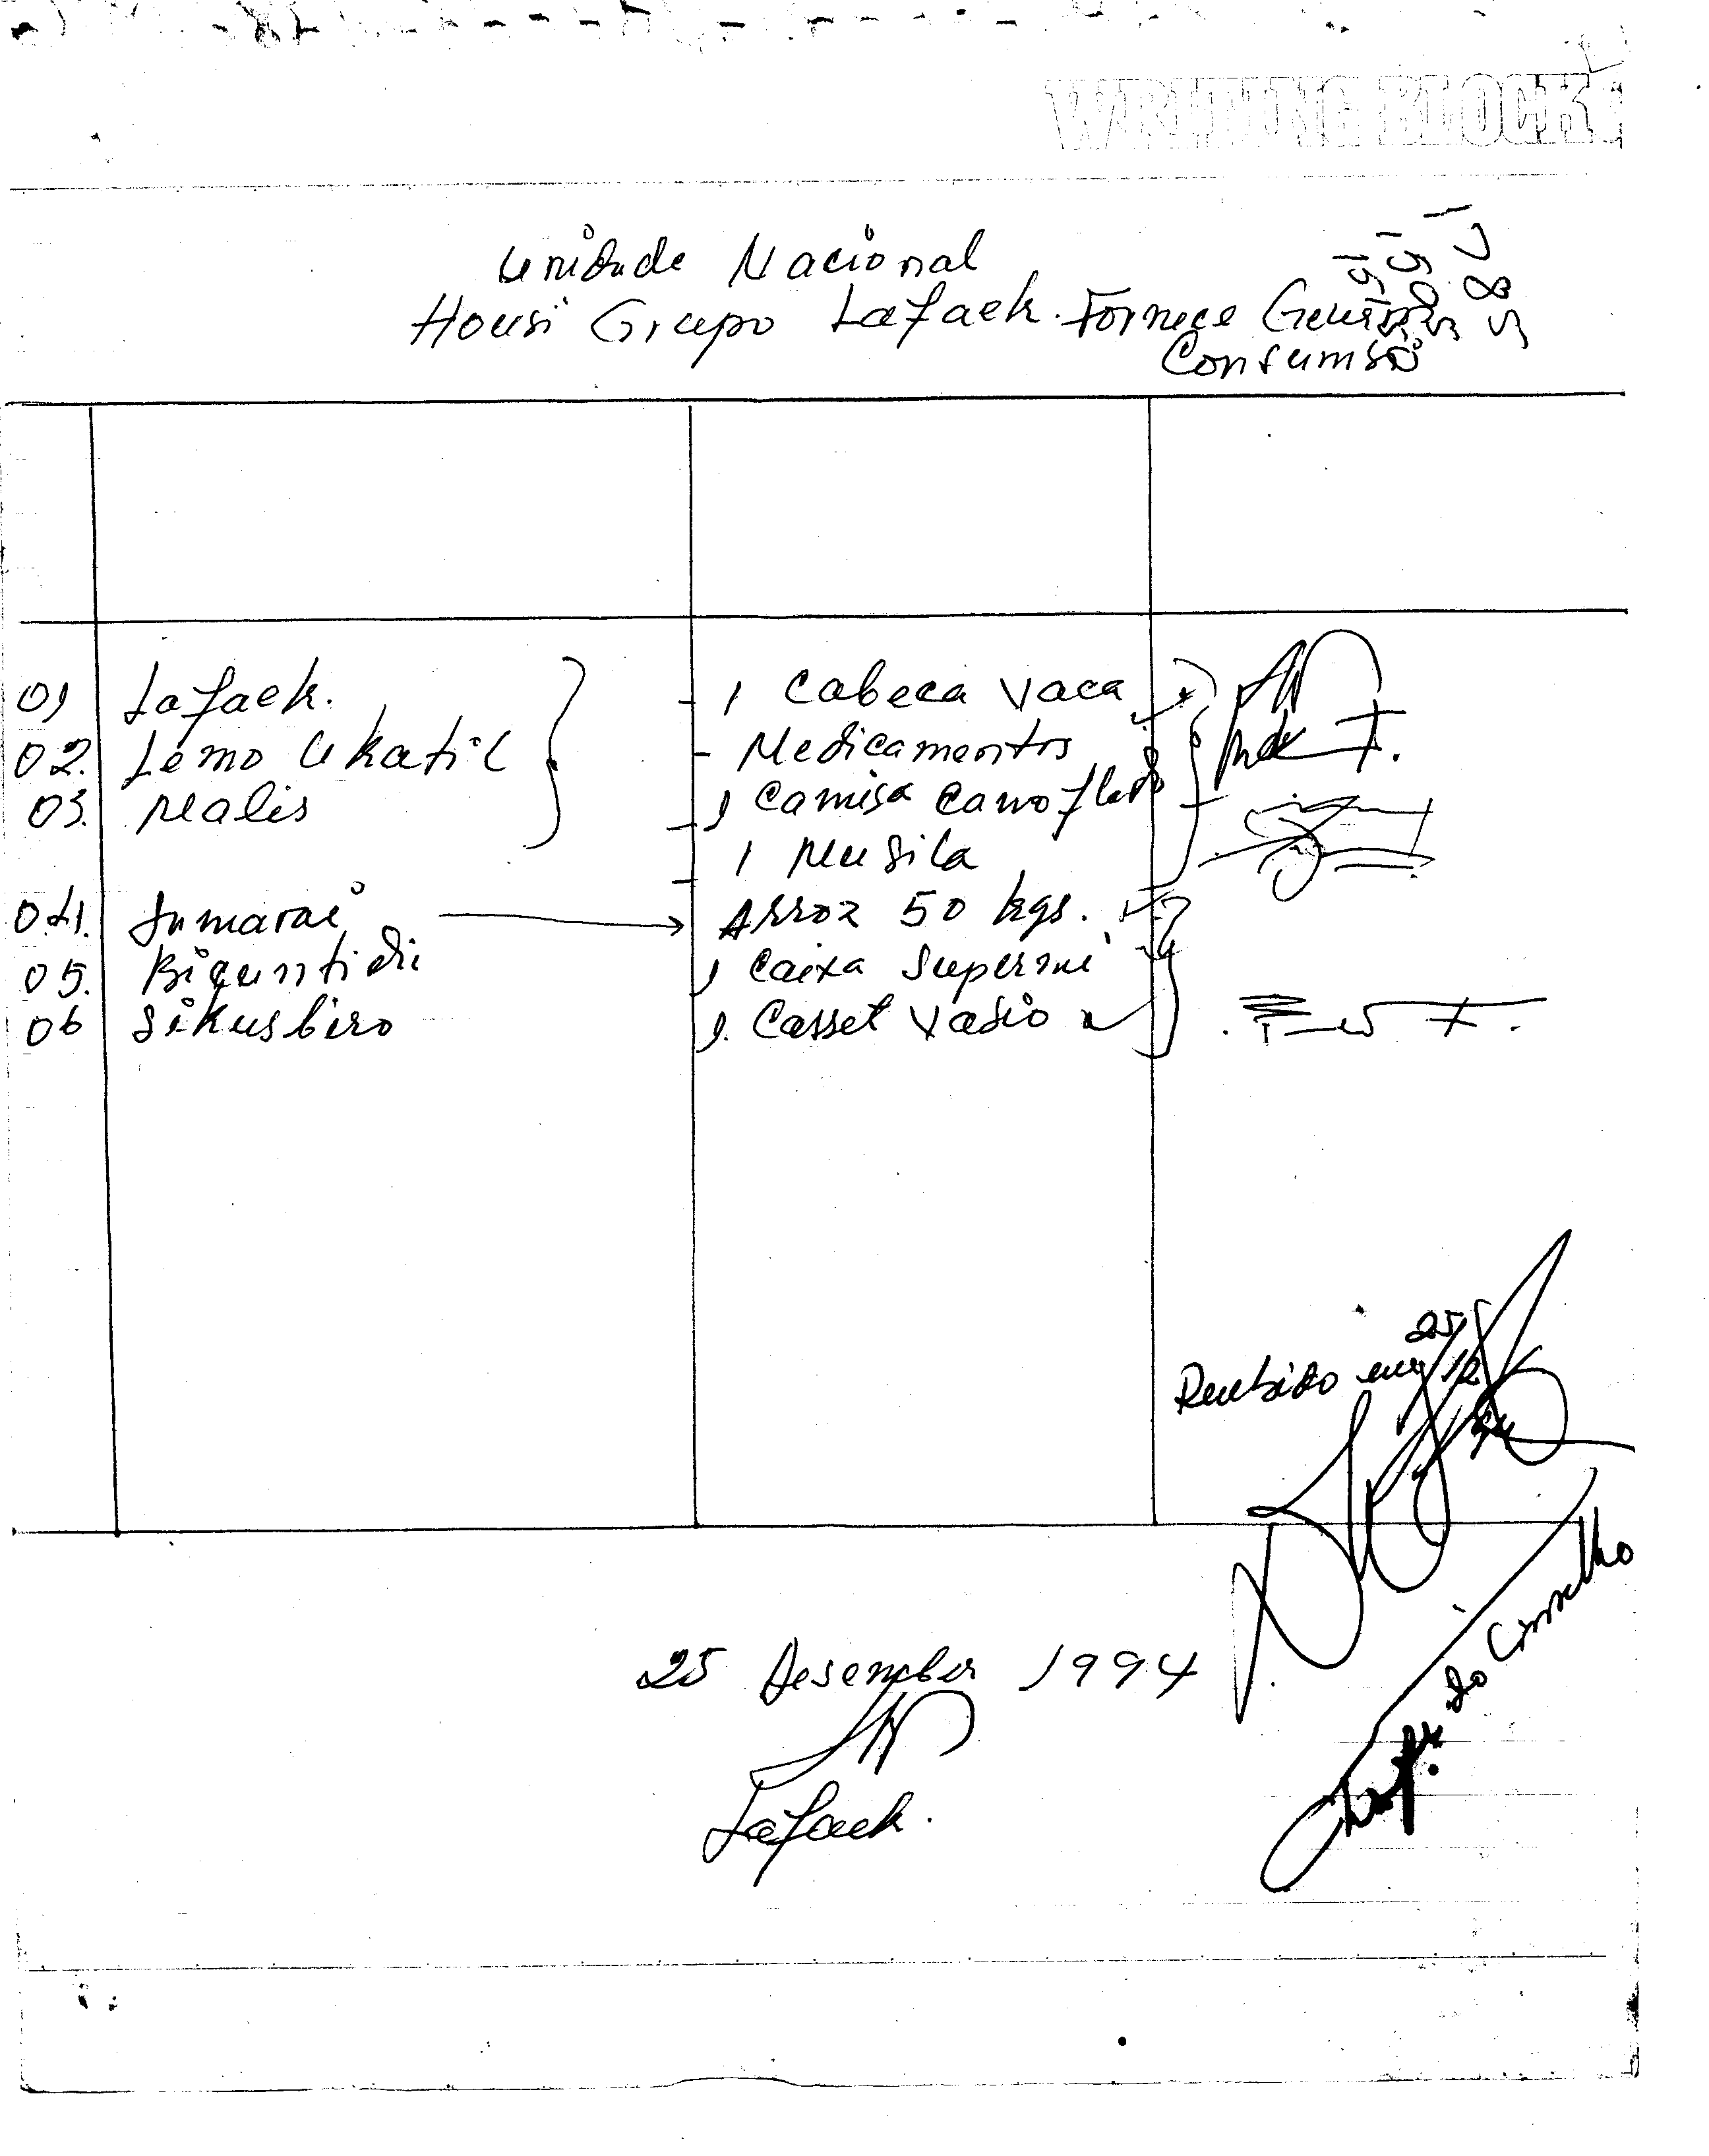 WRITING BLOCK
Unidade Nacional
Housi Grupo Lafaek. Fornece
Consumso
01 Lafaek. - 1 Cabeca Vaca
02. Lemo Ukatil - Medicamentos
03. Mealis - 1 Camisa Camoflado
- 1 Musila
04. Inmarai Arroz 50 kgs.
05. Bicuntidi 1 Caixa Supermi
06 Sikusbiro 1. Casset Vasio
Recebido em 25/12/94
25 Desember 1994
Lafaek.
Chefe do Conselho